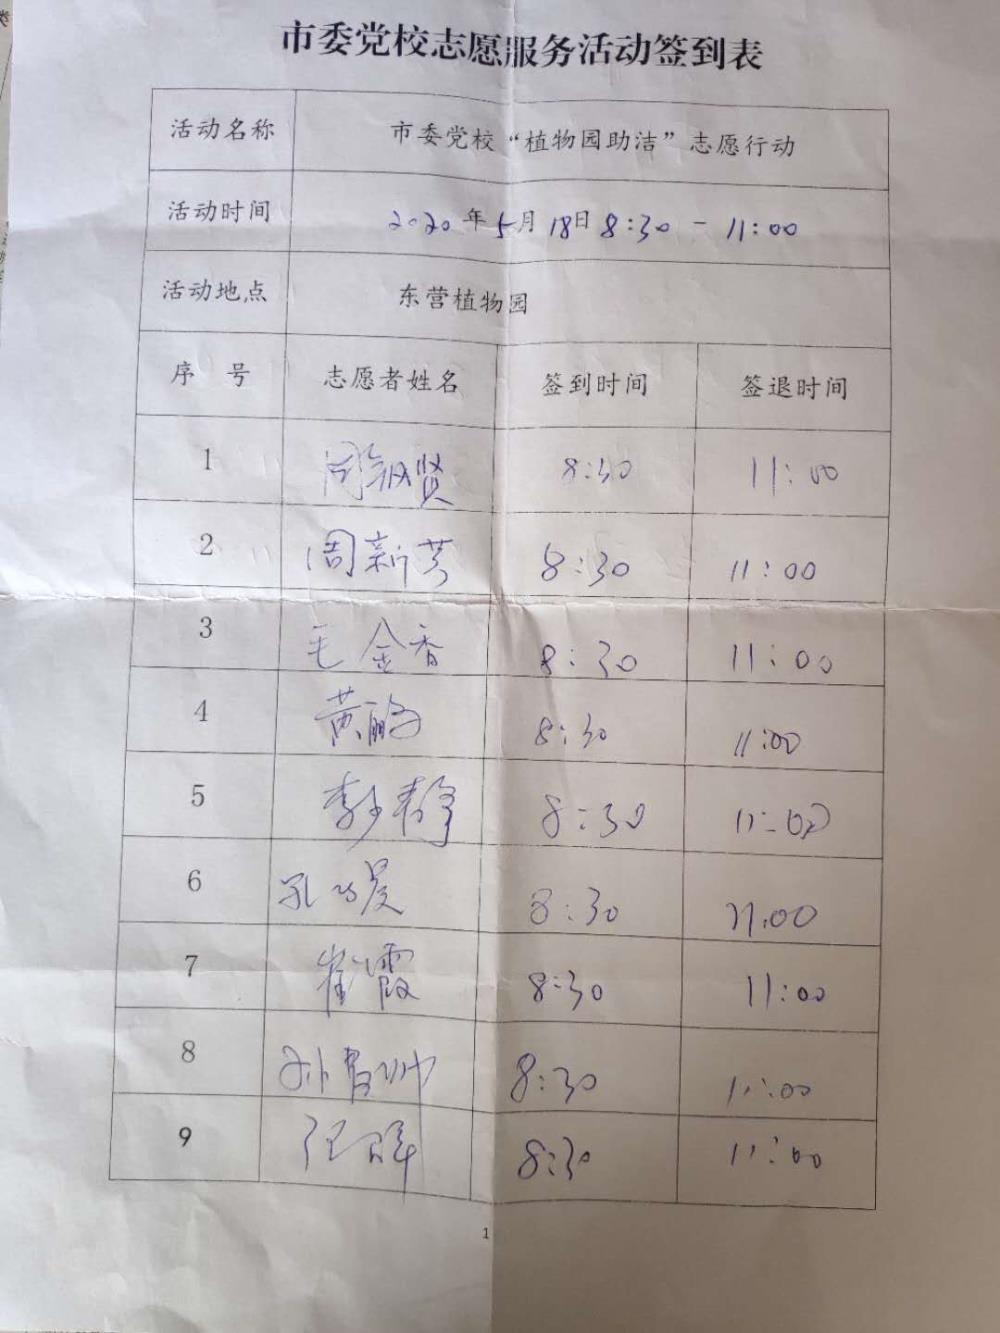 市委党校志愿服务活动签到表
活动名称 市委党校“植物园助洁”志愿行动
活动时间 2020年5月18日 8:30-11:00
活动地点 东营植物园
序 号 志愿者姓名 签到时间 签退时间
1 8:30 11:00
2 周新芳 8:30 11:00
3 毛金香 8:30 11:00
4 黄鹂 8:30 11:00
5 李静 8:30 11:00
6 8:30 11:00
7 崔霞 8:30 11:00
8 8:30 11:00
9 8:30 11:00
1